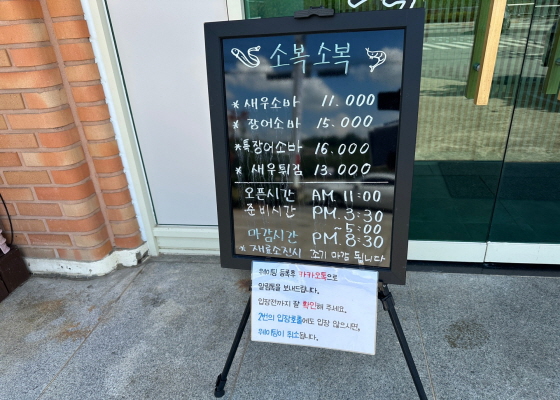 소복소복
* 새우소바 11.000
* 장어소바 15.000
* 특장어소바 16.000
* 새우튀김 13.000
오픈시간 AM. 11:00
준비시간 PM. 3:30
~ 5:00
마감시간 PM. 8:30
* 재료소진시 조기 마감 됩니다
웨이팅 등록후 카카오톡으로
알림톡을 보내드립니다.
입장전까지 잘 확인해 주세요.
2번의 입장호출에도 입장 않으시면,
웨이팅이 취소됩니다.